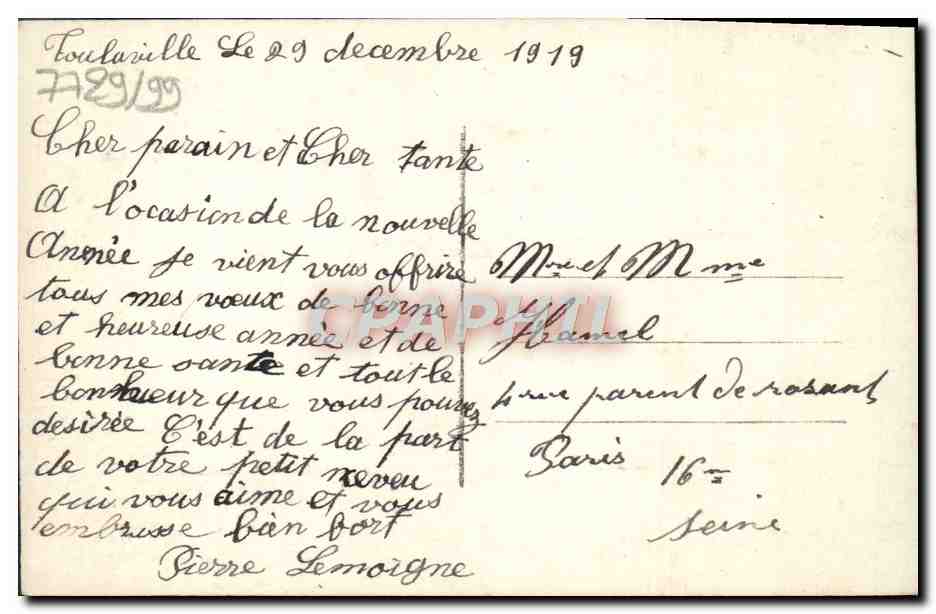 Toulaville Le 29 decembre 1919
7729/99
Cher parain et Cher tante
A l'ocasion de la nouvelle
Année je vient vous offrire
tous mes vœux de bonne
et heureuse année et de
bonne sante et tout le
bonheur que vous pouvez
desirée C'est de la part
de votre petit neveu
qui vous aime et vous
embrasse bien fort
Pierre Lemoigne
Mr et Mme
Hamel
4 rue parent de rosant
Paris 16me
Seine
CPAPHIL